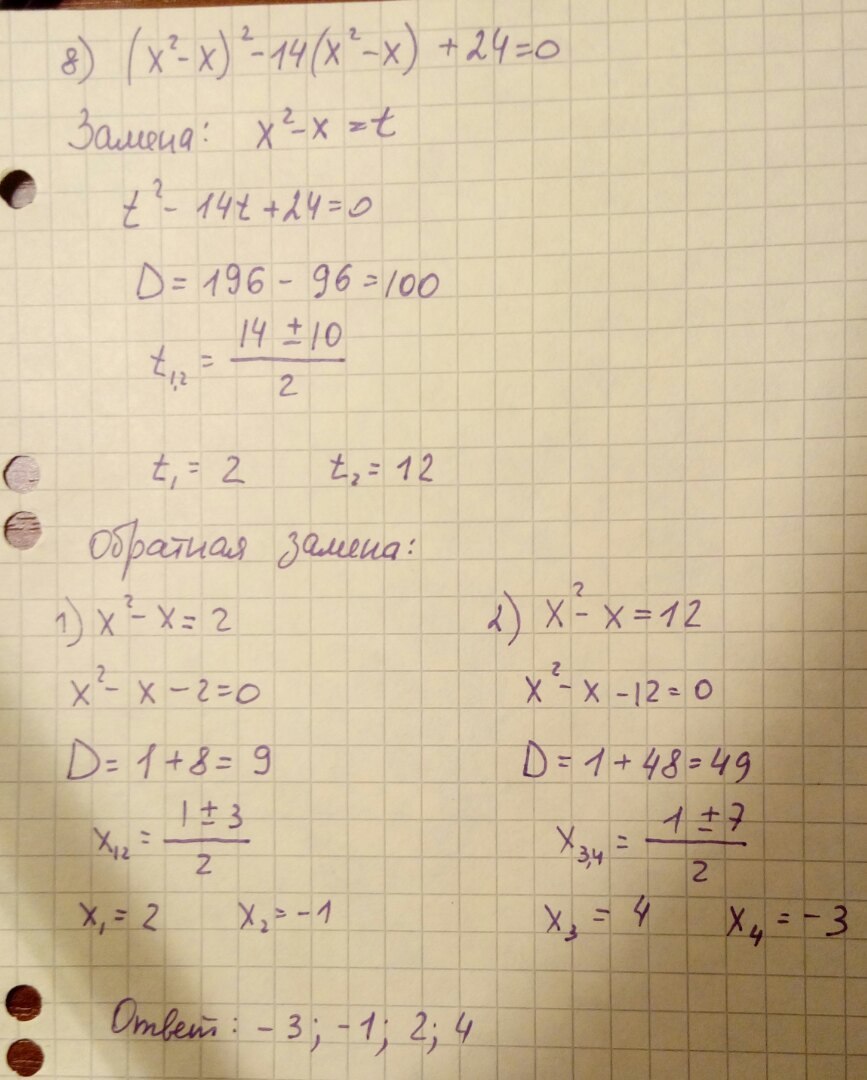 8) (x²-x)²-14(x²-x)+24=0
Замена: x²-x=t
t²-14t+24=0
D=196-96=100
t₁,₂ = (14±10)/2
t₁=2 t₂=12
Обратная замена:
1) x²-x=2
x²-x-2=0
D=1+8=9
x₁₂ = (1±3)/2
x₁=2 x₂=-1
2) x²-x=12
x²-x-12=0
D=1+48=49
x₃,₄ = (1±7)/2
x₃=4 x₄=-3
Ответ: -3; -1; 2; 4